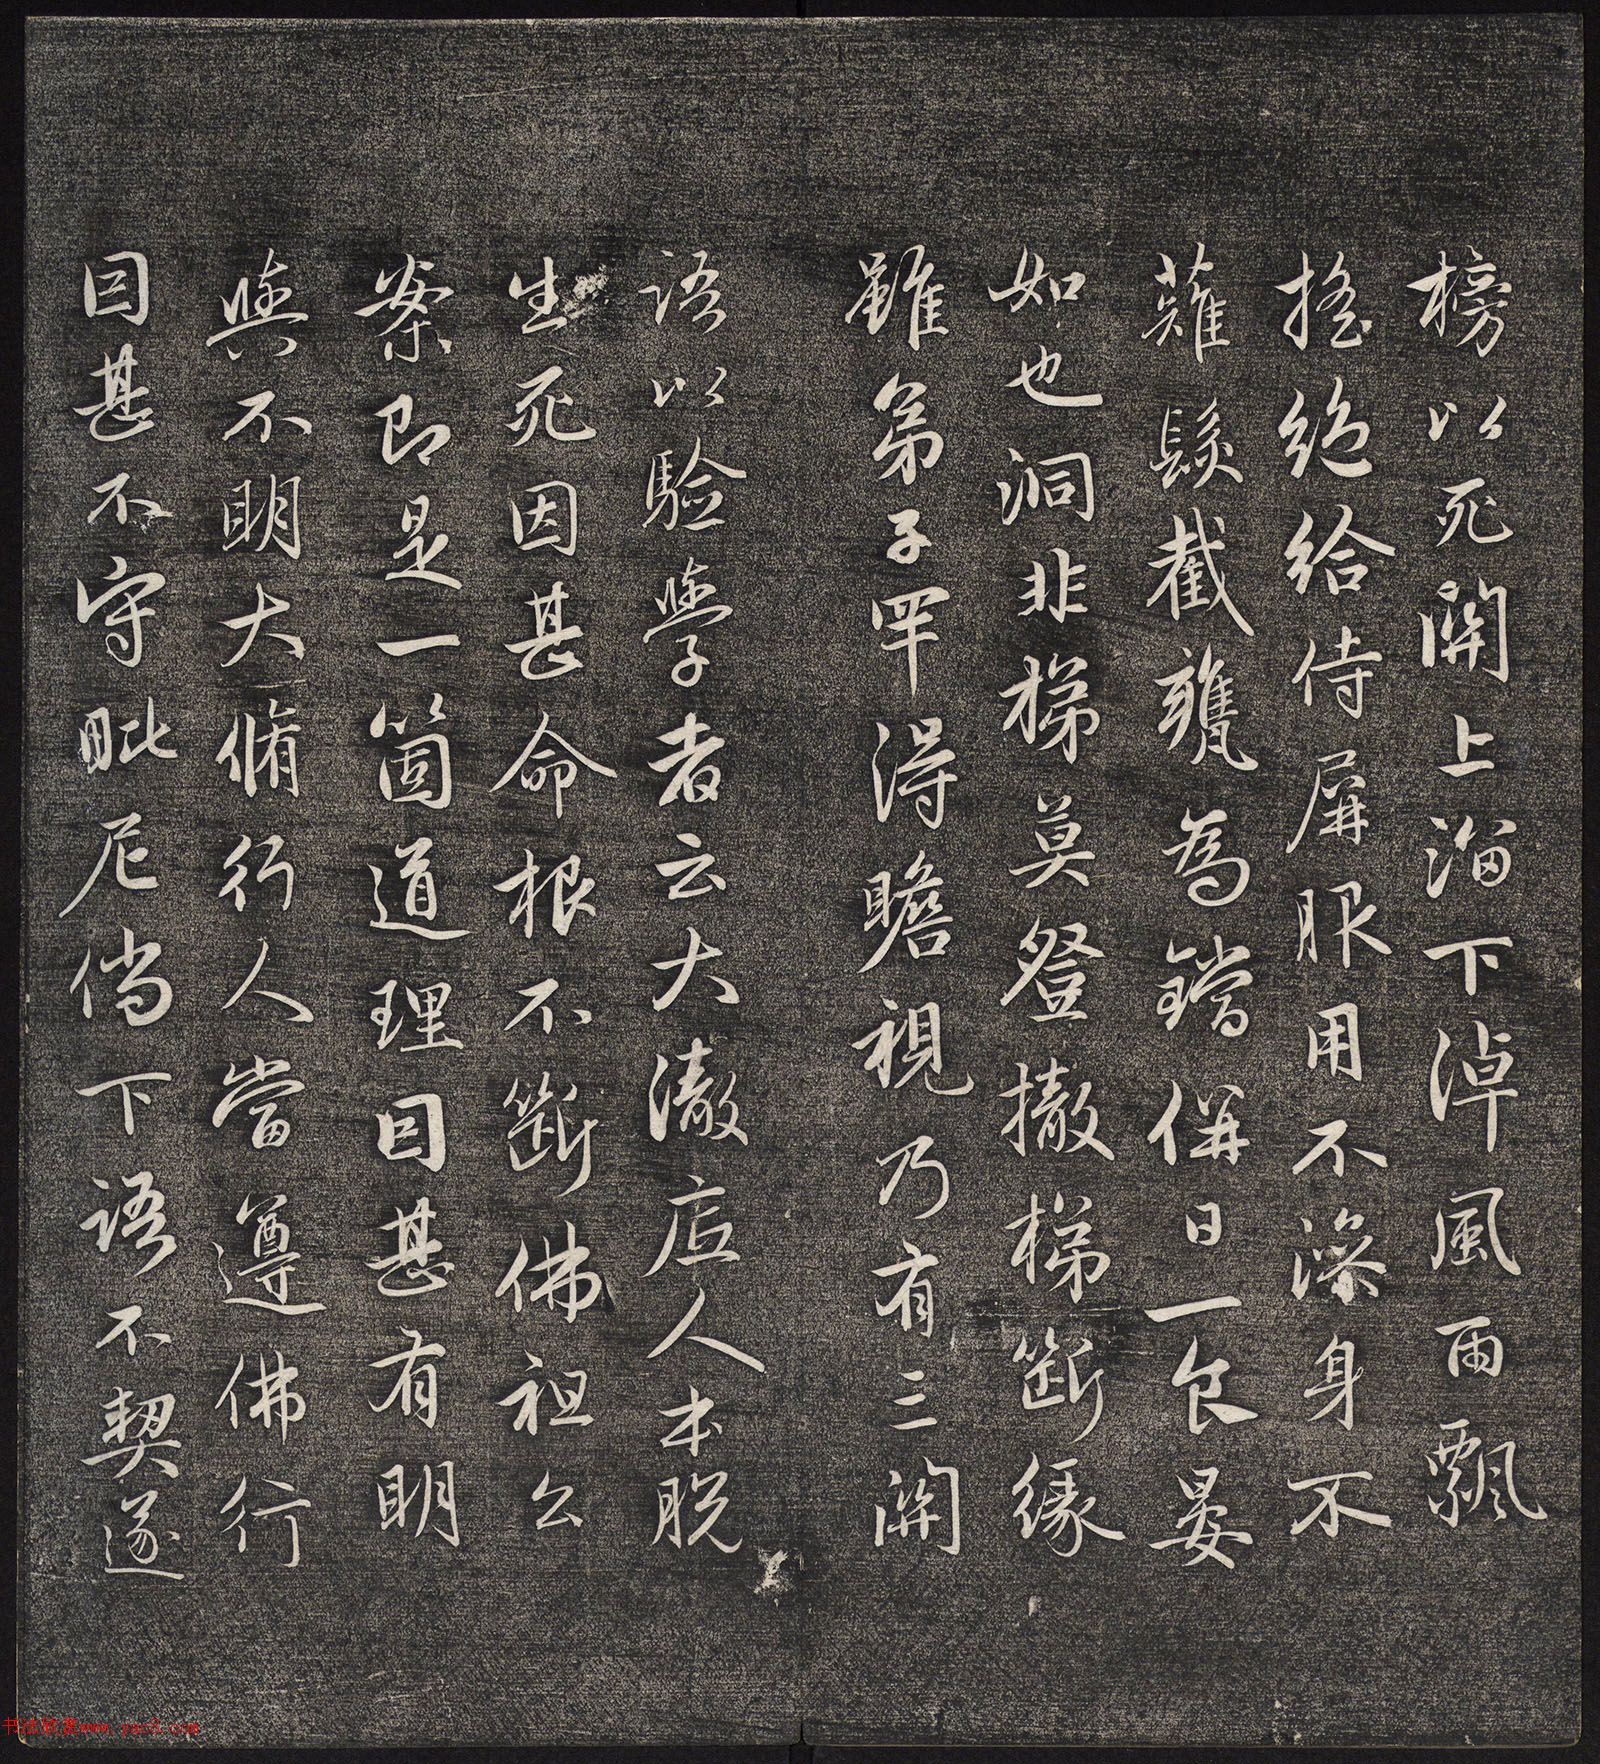 榜以死關上溜下淖風雨飄
搖絕給侍屏服用不澡身不
薙髮截甕為鐺併日一食晏
如也洞非梯莫登撤梯斷緣
雖弟子罕得瞻視乃有三關
語以驗學者云大澈底人本脫
生死因甚命根不斷佛祖公
案即是一箇道理因甚有明
與不明大脩行人當遵佛行
因甚不守毗尼倘下語不契遂
书法欣赏www.yac8.com